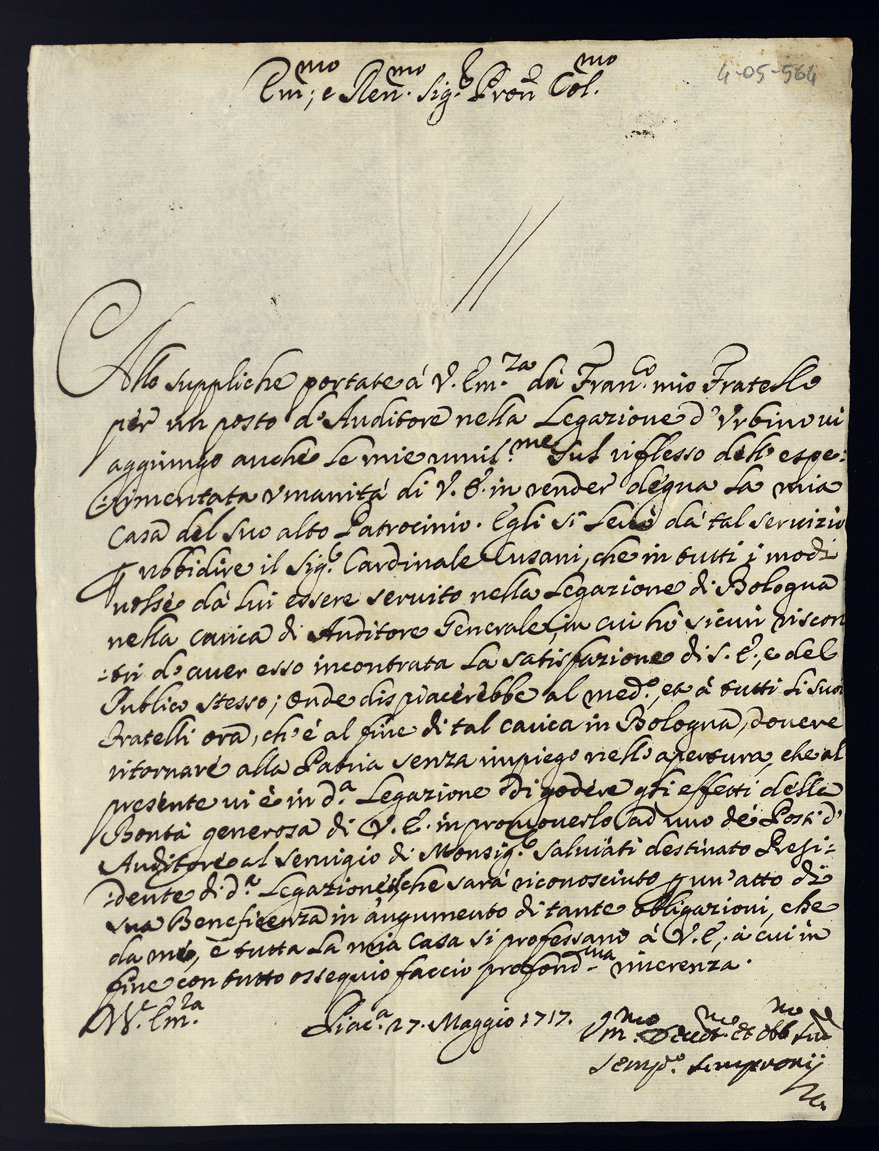 4-05-564
Em.mo; e Ren.mo Sig.r Pron Col.mo
Alle suppliche portate á V. Em.za dà Fran.co mio Fratello
per un posto d'Auditore nella Legazione d'Vrbino vi
aggiungo anche le mie umil.me Sul riflesso dell'espe:
:rimentata vmanitá di V. E. in render degna la mia
Casa del suo alto Patrocinio. Egli si levò dà tal servizio
p ubbidire il Sig.r Cardinale Cusani, che in tutti i modi
volse dà lui essere servito nella Legazione di Bologna
nella carica di Auditore Generale, in cui hò sicuri riscon
:tri d'auer esso incontrata la satisfazione di S. E., e del
Publico stesso; onde dispiacerebbe al med.o, et à tutti li suoi
Fratelli ora, ch'é al fine di tal carica in Bologna, douere
ritornare alla Patria senza impiego nell'apertura, che al
presente vi è in d.a Legazione di godére gli effetti della
Bontà generosa di V. E. in promouerlo ad uno dé Posti d'
Auditore al servigio di Monsig.r Salviati destinato Presi:
:dente di d.a Legazione, che sará riconosciuto p un'atto di
sua Beneficenza in augumento di tante obligazioni, che
da mé, e tutta la mia casa si professano á V. E., á cui in
fine con tutto ossequio faccio profond.ma riuerenza.
V.ra Em.za
Piac.a 27. Maggio 1717.
Vm.mo Deuot.mo et obb.mo Ser.e
Semp.o Sempronij